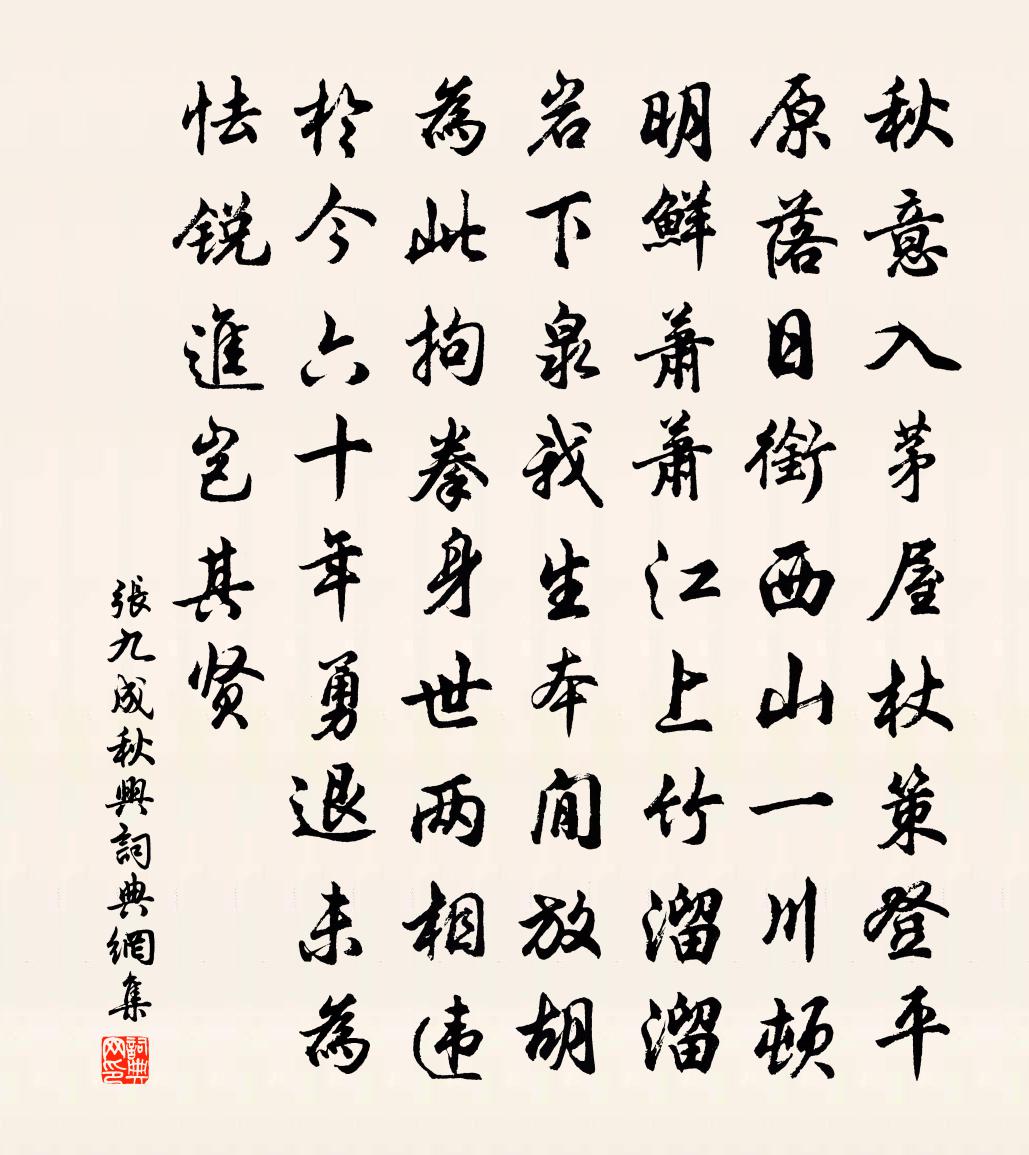 秋意入茅屋杖策登平
原落日銜西山一川頓
明鮮蕭蕭江上竹溜溜
岩下泉我生本閒放胡
為此拘拳身世两相违
於今六十年勇退未為
怯鋭進岂其贤
張九成秋興詞典網集
詞典网印